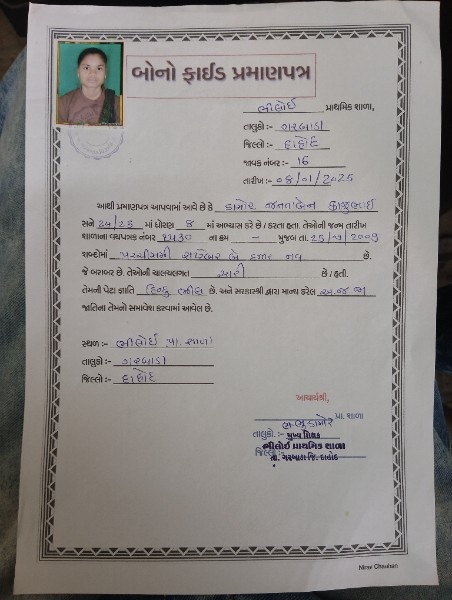 બોનો ફાઈડ પ્રમાણપત્ર
ભીલોઈ પ્રાથમિક શાળા,
તાલુકો :- ગરબાડા
જિલ્લો :- દાહોદ
જાવક નંબર :- 16
તારીખ :- 08/01/2025
આથી પ્રમાણપત્ર આપવામાં આવે છે કે ડામોર
સને 24/25 માં ધોરણ 8 માં અભ્યાસ કરે છે / કરતા હતા. તેઓની જન્મ તારીખ
શાળાના વયપત્રક નંબર ના ક્રમ - મુજબ તા.
શબ્દોમાં પચ્ચીસમી બે હજાર નવ છે.
જે બરાબર છે. તેઓની ચાલચલગત સારી છે / હતી.
તેમની પેટા જ્ઞાતિ હિન્દુ ભીલ છે. અને સરકારશ્રી દ્વારા માન્ય ઠરેલ અ.જ.જા
જાતિના તેમનો સમાવેશ કરવામાં આવેલ છે.
સ્થળ :- ભીલોઈ પ્રા. શાળા
તાલુકો :- ગરબાડા
જિલ્લો :- દાહોદ
આચાર્યશ્રી,
પ્રા. શાળા
તાલુકો :- મુખ્ય શિક્ષક
ભીલોઈ પ્રાથમિક શાળા
જિલ્લો :-
તા. ગરબાડા જિ. દાહોદ
Nirav Chauhan